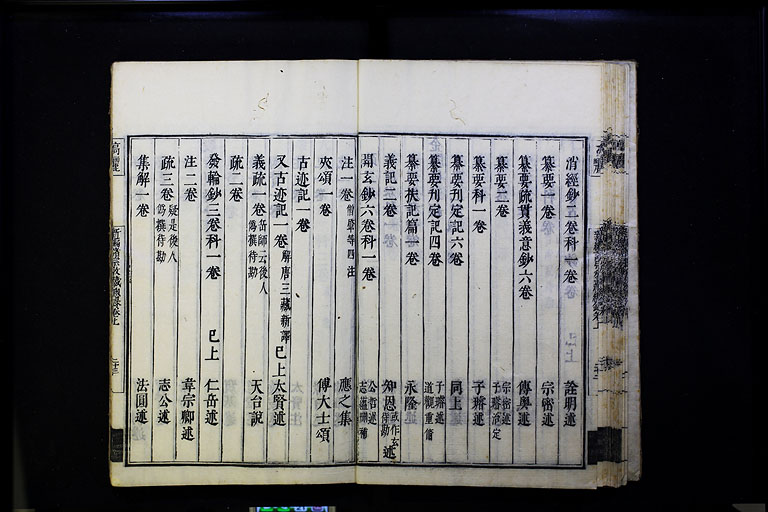 消經鈔二卷科一卷 詮明述
纂要一卷 宗密述
纂要疏貫義意鈔六卷 傳奧述
纂要二卷 宗密述 子璿治定
纂要科一卷 子璿述
纂要刋定記六卷 同上
纂要刋定記四卷 子璿述 道觀重
纂要扶記篇一卷 永隆述
義記二卷 知恩或作玄侍勘述
開玄鈔六卷科一卷 公哲述 志蘊
注一卷僧肇等四注 應之集
夾頌一卷 傅大士頌
古迹記一卷
又古迹記一卷解唐三藏新譯 已上太賢述
義疏一卷岳師云後人僞撰侍勘 天台說
疏二卷
發軫鈔三卷科一卷 已上 仁岳述
注二卷 韋宗卿述
疏三卷疑是後人僞撰侍勘 志公述
集解一卷 法圓述